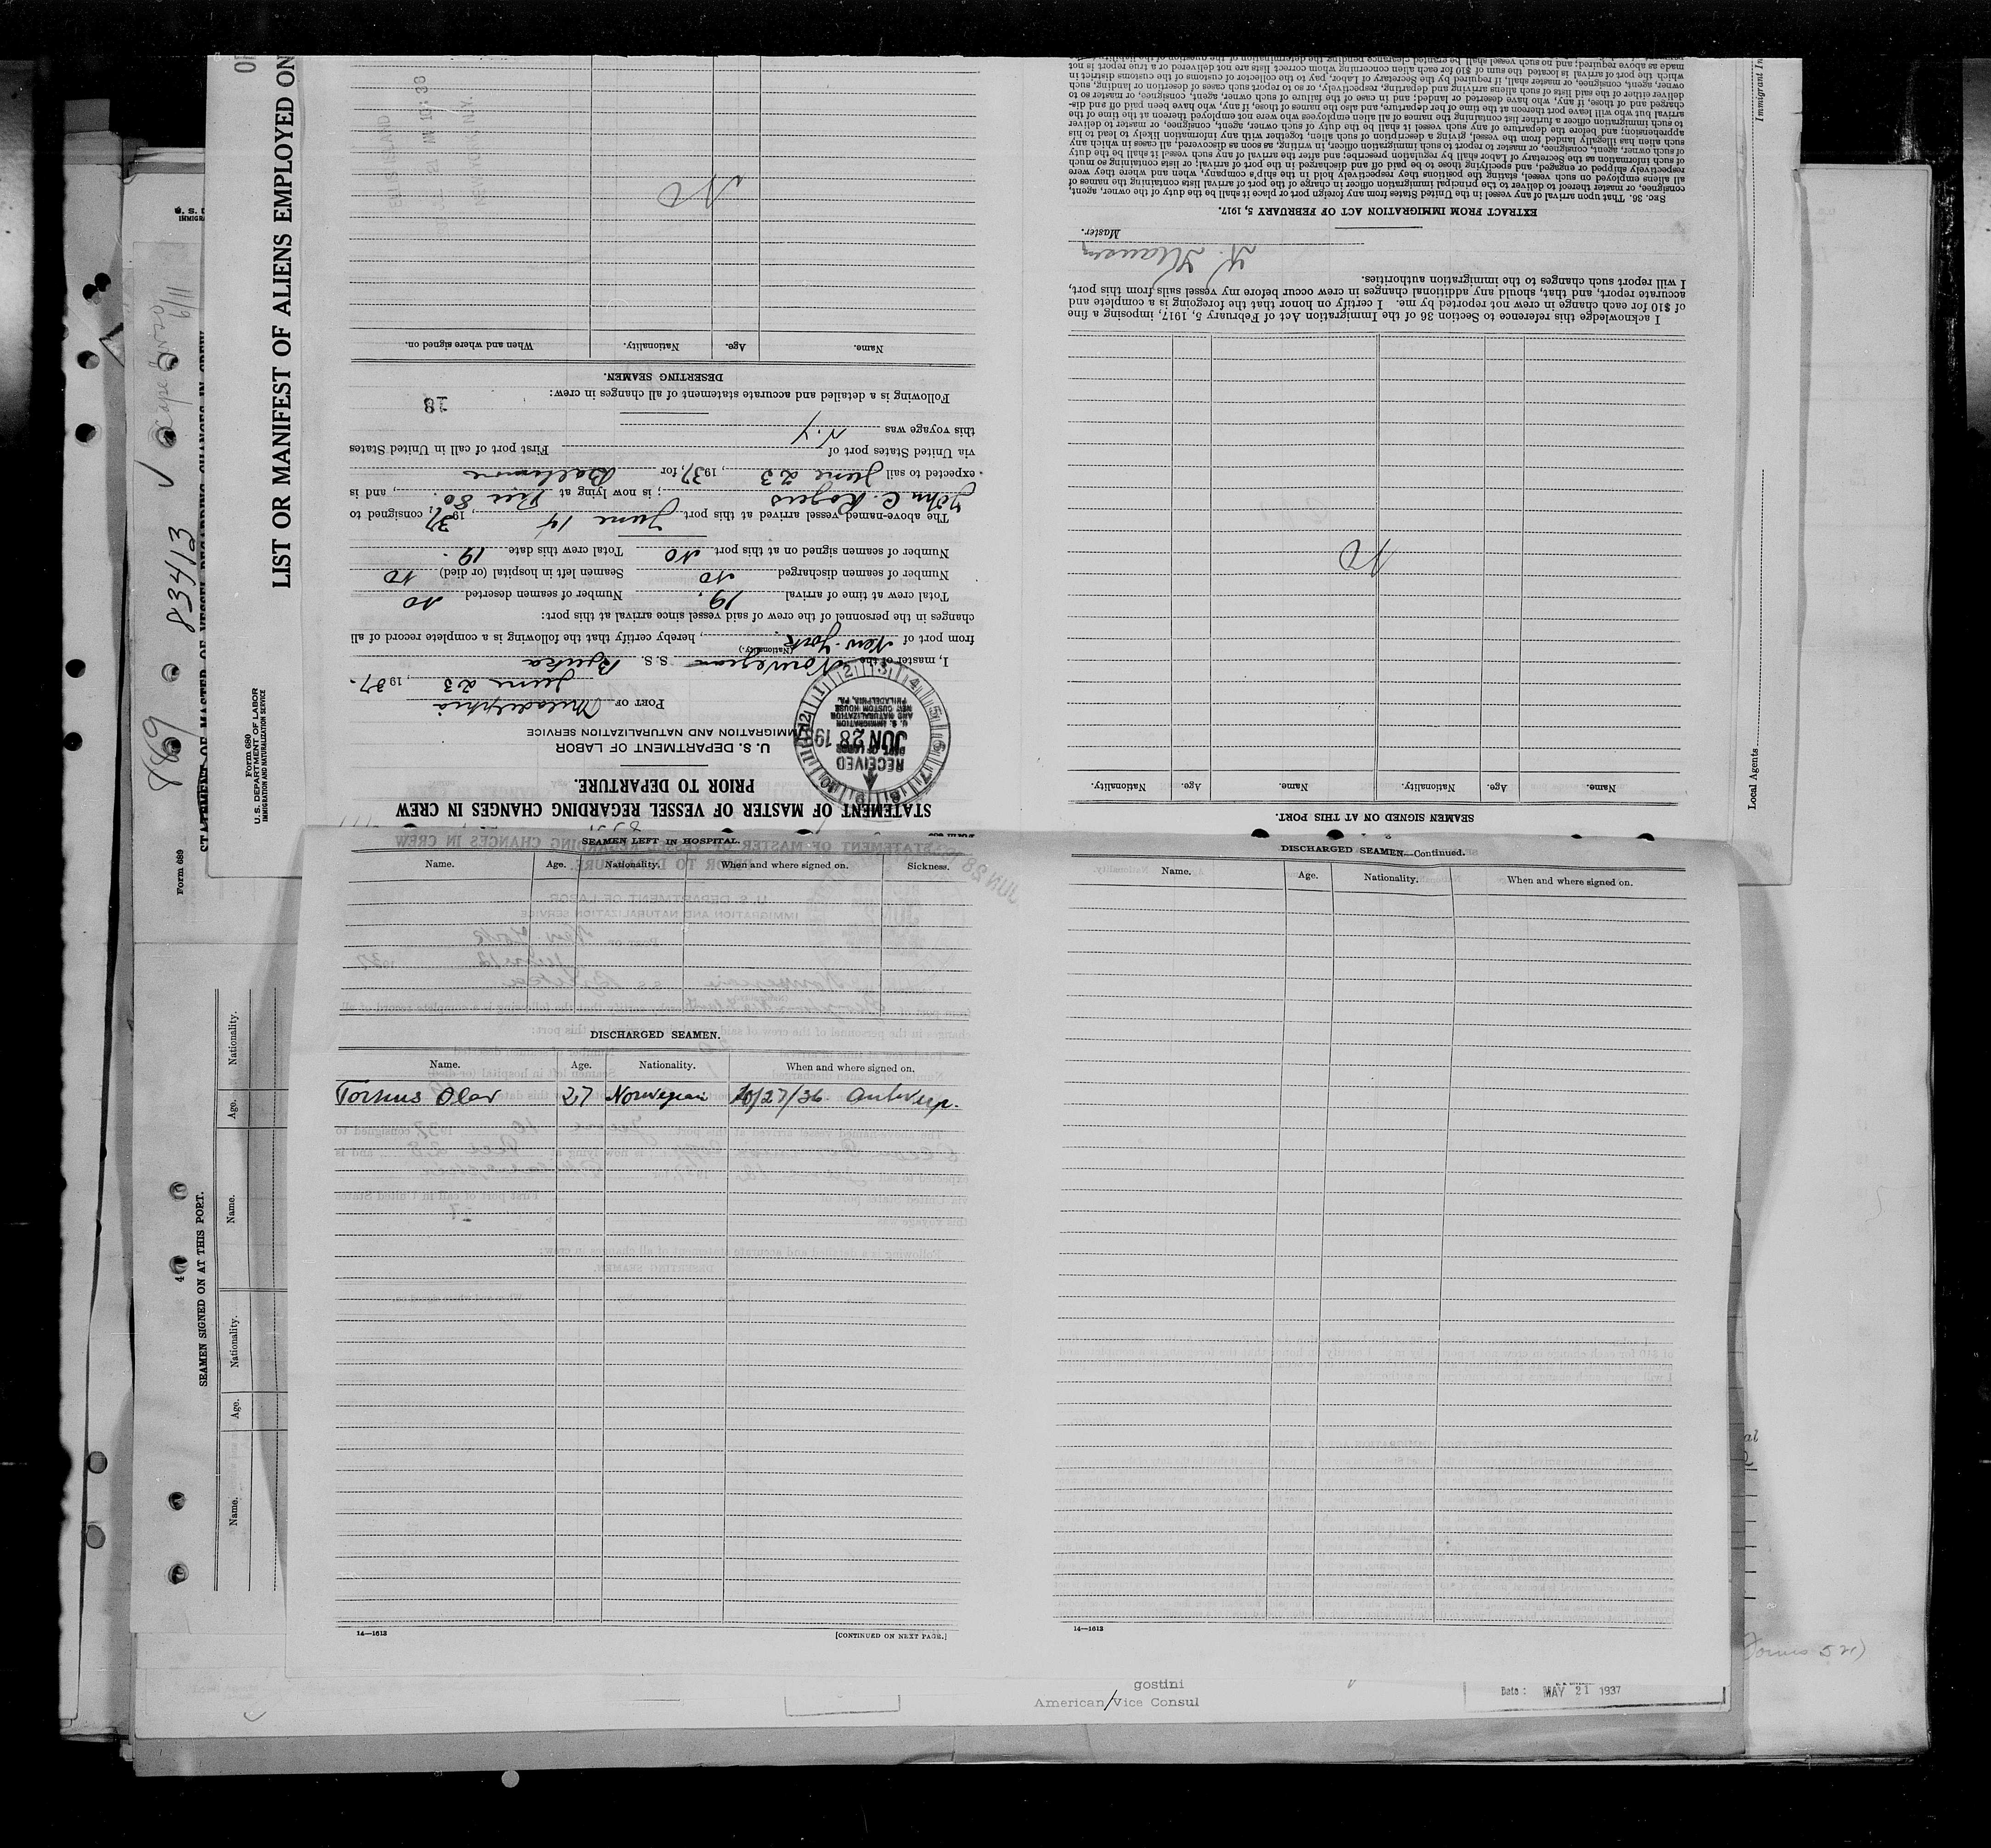 STATEMENT OF MASTER OF VESSEL REGARDING CHANGES IN CREW
PRIOR TO DEPARTURE.
U. S. DEPARTMENT OF LABOR
IMMIGRATION AND NATURALIZATION SERVICE
RECEIVED
DEPT. OF LABOR
JUN 28 19
U. S. IMMIGRATION
AND NATURALIZATION
NEW CUSTOM HOUSE
PHILADELPHIA, PA.
PORT OF Philadelphia
June 23, 1937.
I, master of the Norwegian S. S. Rjukan
(Nationality.)
from port of New York, hereby certify that the following is a complete record of all
changes in the personnel of the crew of said vessel since arrival at this port:
Total crew at time of arrival 19. Number of seamen deserted No
Number of seamen discharged No Seamen left in hospital (or died) No
Number of seamen signed on at this port No Total crew this date 19.
The above-named vessel arrived at this port June 14, 1937, consigned to
John C. Rogers; is now lying at Pier 80., and is
expected to sail June 23, 1937, for Baltimore
via United States port of First port of call in United States
this voyage was N.Y
18
Following is a detailed and accurate statement of all changes in crew:
DESERTING SEAMEN.
Name. Age. Nationality. When and where signed on.
No
SEAMEN SIGNED ON AT THIS PORT.
Name. Age. Nationality. Name. Age. Nationality.
No
I acknowledge this reference to Section 36 of the Immigration Act of February 5, 1917, imposing a fine
of $10 for each change in crew not reported by me. I certify on honor that the foregoing is a complete and
accurate report, and that, should any additional changes in crew occur before my vessel sails from this port,
I will report such changes to the immigration authorities.
Master.
EXTRACT FROM IMMIGRATION ACT OF FEBRUARY 5, 1917.
SEC. 36. That upon arrival of any vessel in the United States from any foreign port or place it shall be the duty of the owner, agent,
consignee, or master thereof to deliver to the principal immigration officer in charge of the port of arrival lists containing the names of
all aliens employed on such vessel, stating the positions they respectively hold in the ship's company, when and where they were
respectively shipped or engaged, and specifying those to be paid off and discharged in the port of arrival; or lists containing so much
of such information as the Secretary of Labor shall by regulation prescribe; and after the arrival of any such vessel it shall be the duty
of such owner, agent, consignee, or master to report to such immigration officer, in writing, as soon as discovered, all cases in which any
such alien has illegally landed from the vessel, giving a description of such alien, together with any information likely to lead to his
apprehension; and before the departure of any such vessel it shall be the duty of such owner, agent, consignee, or master to deliver
to such immigration officer a further list containing the names of all alien employees who were not employed thereon at the time of the
arrival but who will leave port thereon at the time of her departure, and also the names of those, if any, who have been paid off and dis-
charged and of those, if any, who have deserted or landed; and in case of the failure of such owner, agent, consignee, or master so to
deliver either of the said lists of such aliens arriving and departing, respectively, or so to report such cases of desertion or landing, such
owner, agent, consignee, or master shall, if required by the Secretary of Labor, pay to the collector of customs of the customs district in
which the port of arrival is located the sum of $10 for each alien concerning whom correct lists are not delivered or a true report is not
made as above required; and no such vessel shall be granted clearance pending the determination of the question of the liability
SEAMEN LEFT IN HOSPITAL.
Name. Age. Nationality. When and where signed on. Sickness.
DISCHARGED SEAMEN.
Name. Age. Nationality. When and where signed on.
Olav 27 Norwegian 10/27/36 Antwerp.
14—1613
[CONTINUED ON NEXT PAGE.]
DISCHARGED SEAMEN—Continued.
Name. Age. Nationality. When and where signed on.
14—1613
gostini
American/Vice Consul
Date: MAY 21 1937
LIST OR MANIFEST OF ALIENS EMPLOYED ON
Form 680
U. S. DEPARTMENT OF LABOR
IMMIGRATION AND NATURALIZATION SERVICE
Form 689
869 83413
6/11
SEAMEN SIGNED ON AT THIS PORT.
Name. Age. Nationality. Name. Age. Nationality.
Local Agents
Immigrant In